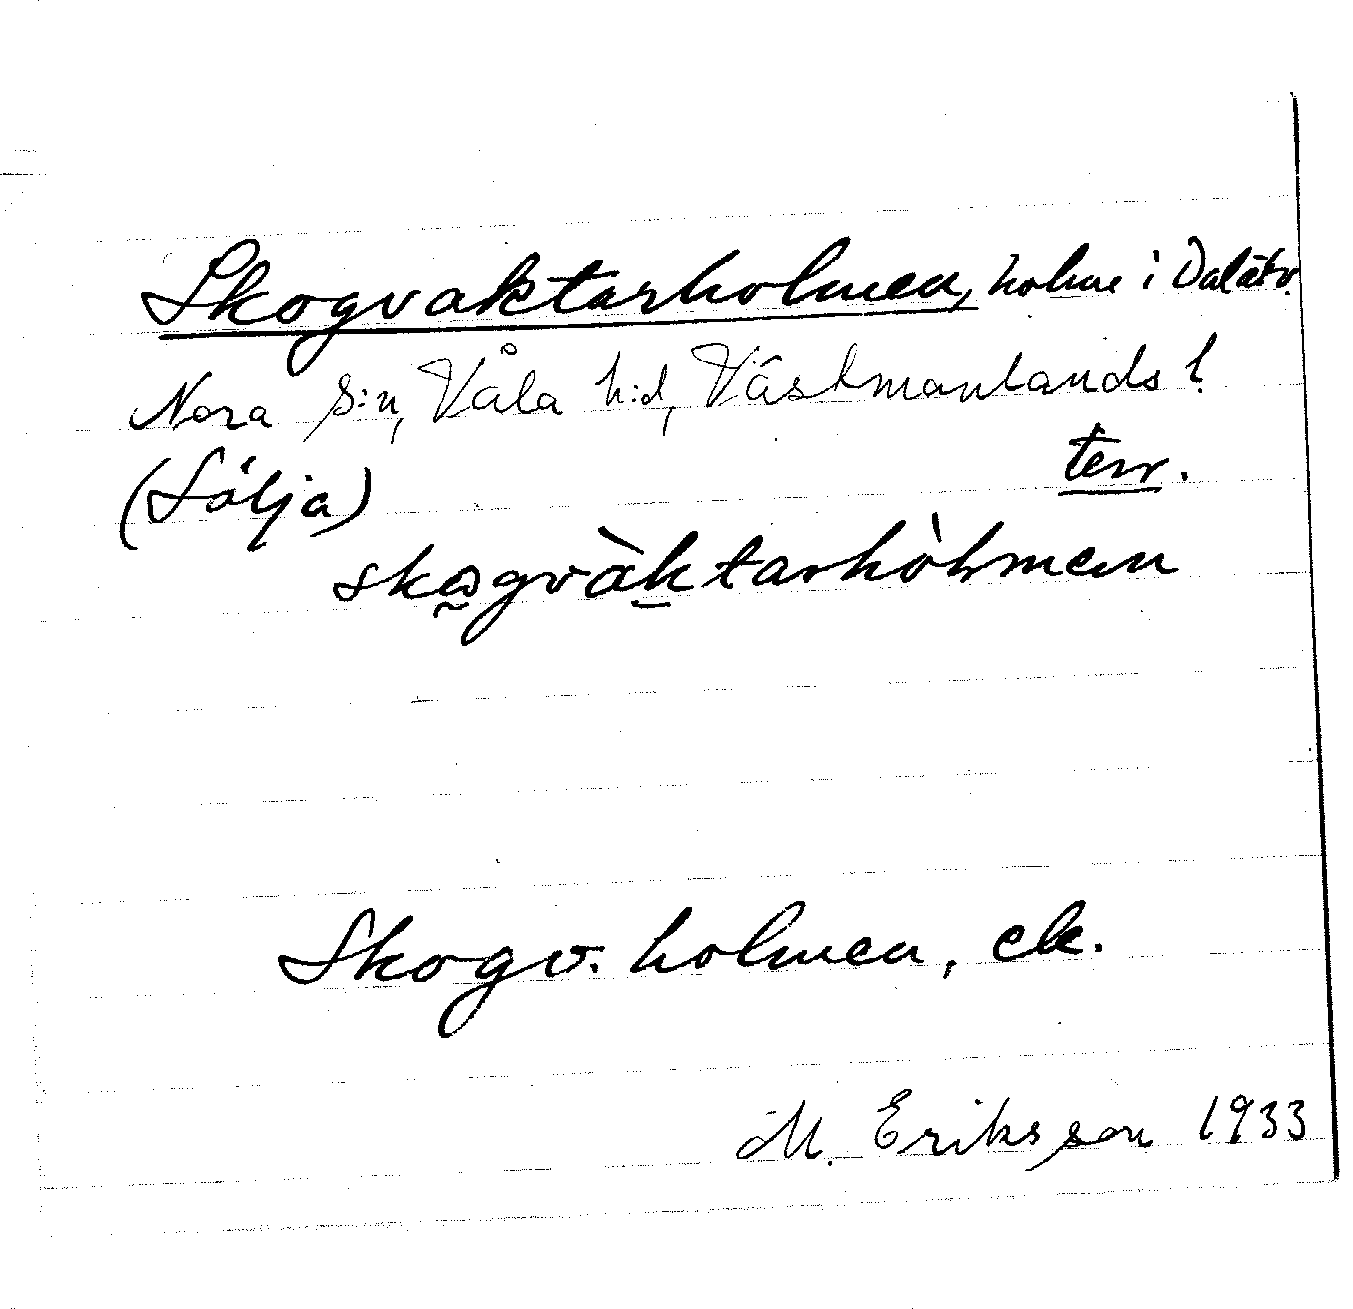 Skogvaktarholmen, holme i Dalälv.
Nora s:n, Våla h:d, Västmanlands l.
(Sälja) terr.
skogvàktarhòlmen
Skogv. holmen, ek.
M. Eriksson 1933